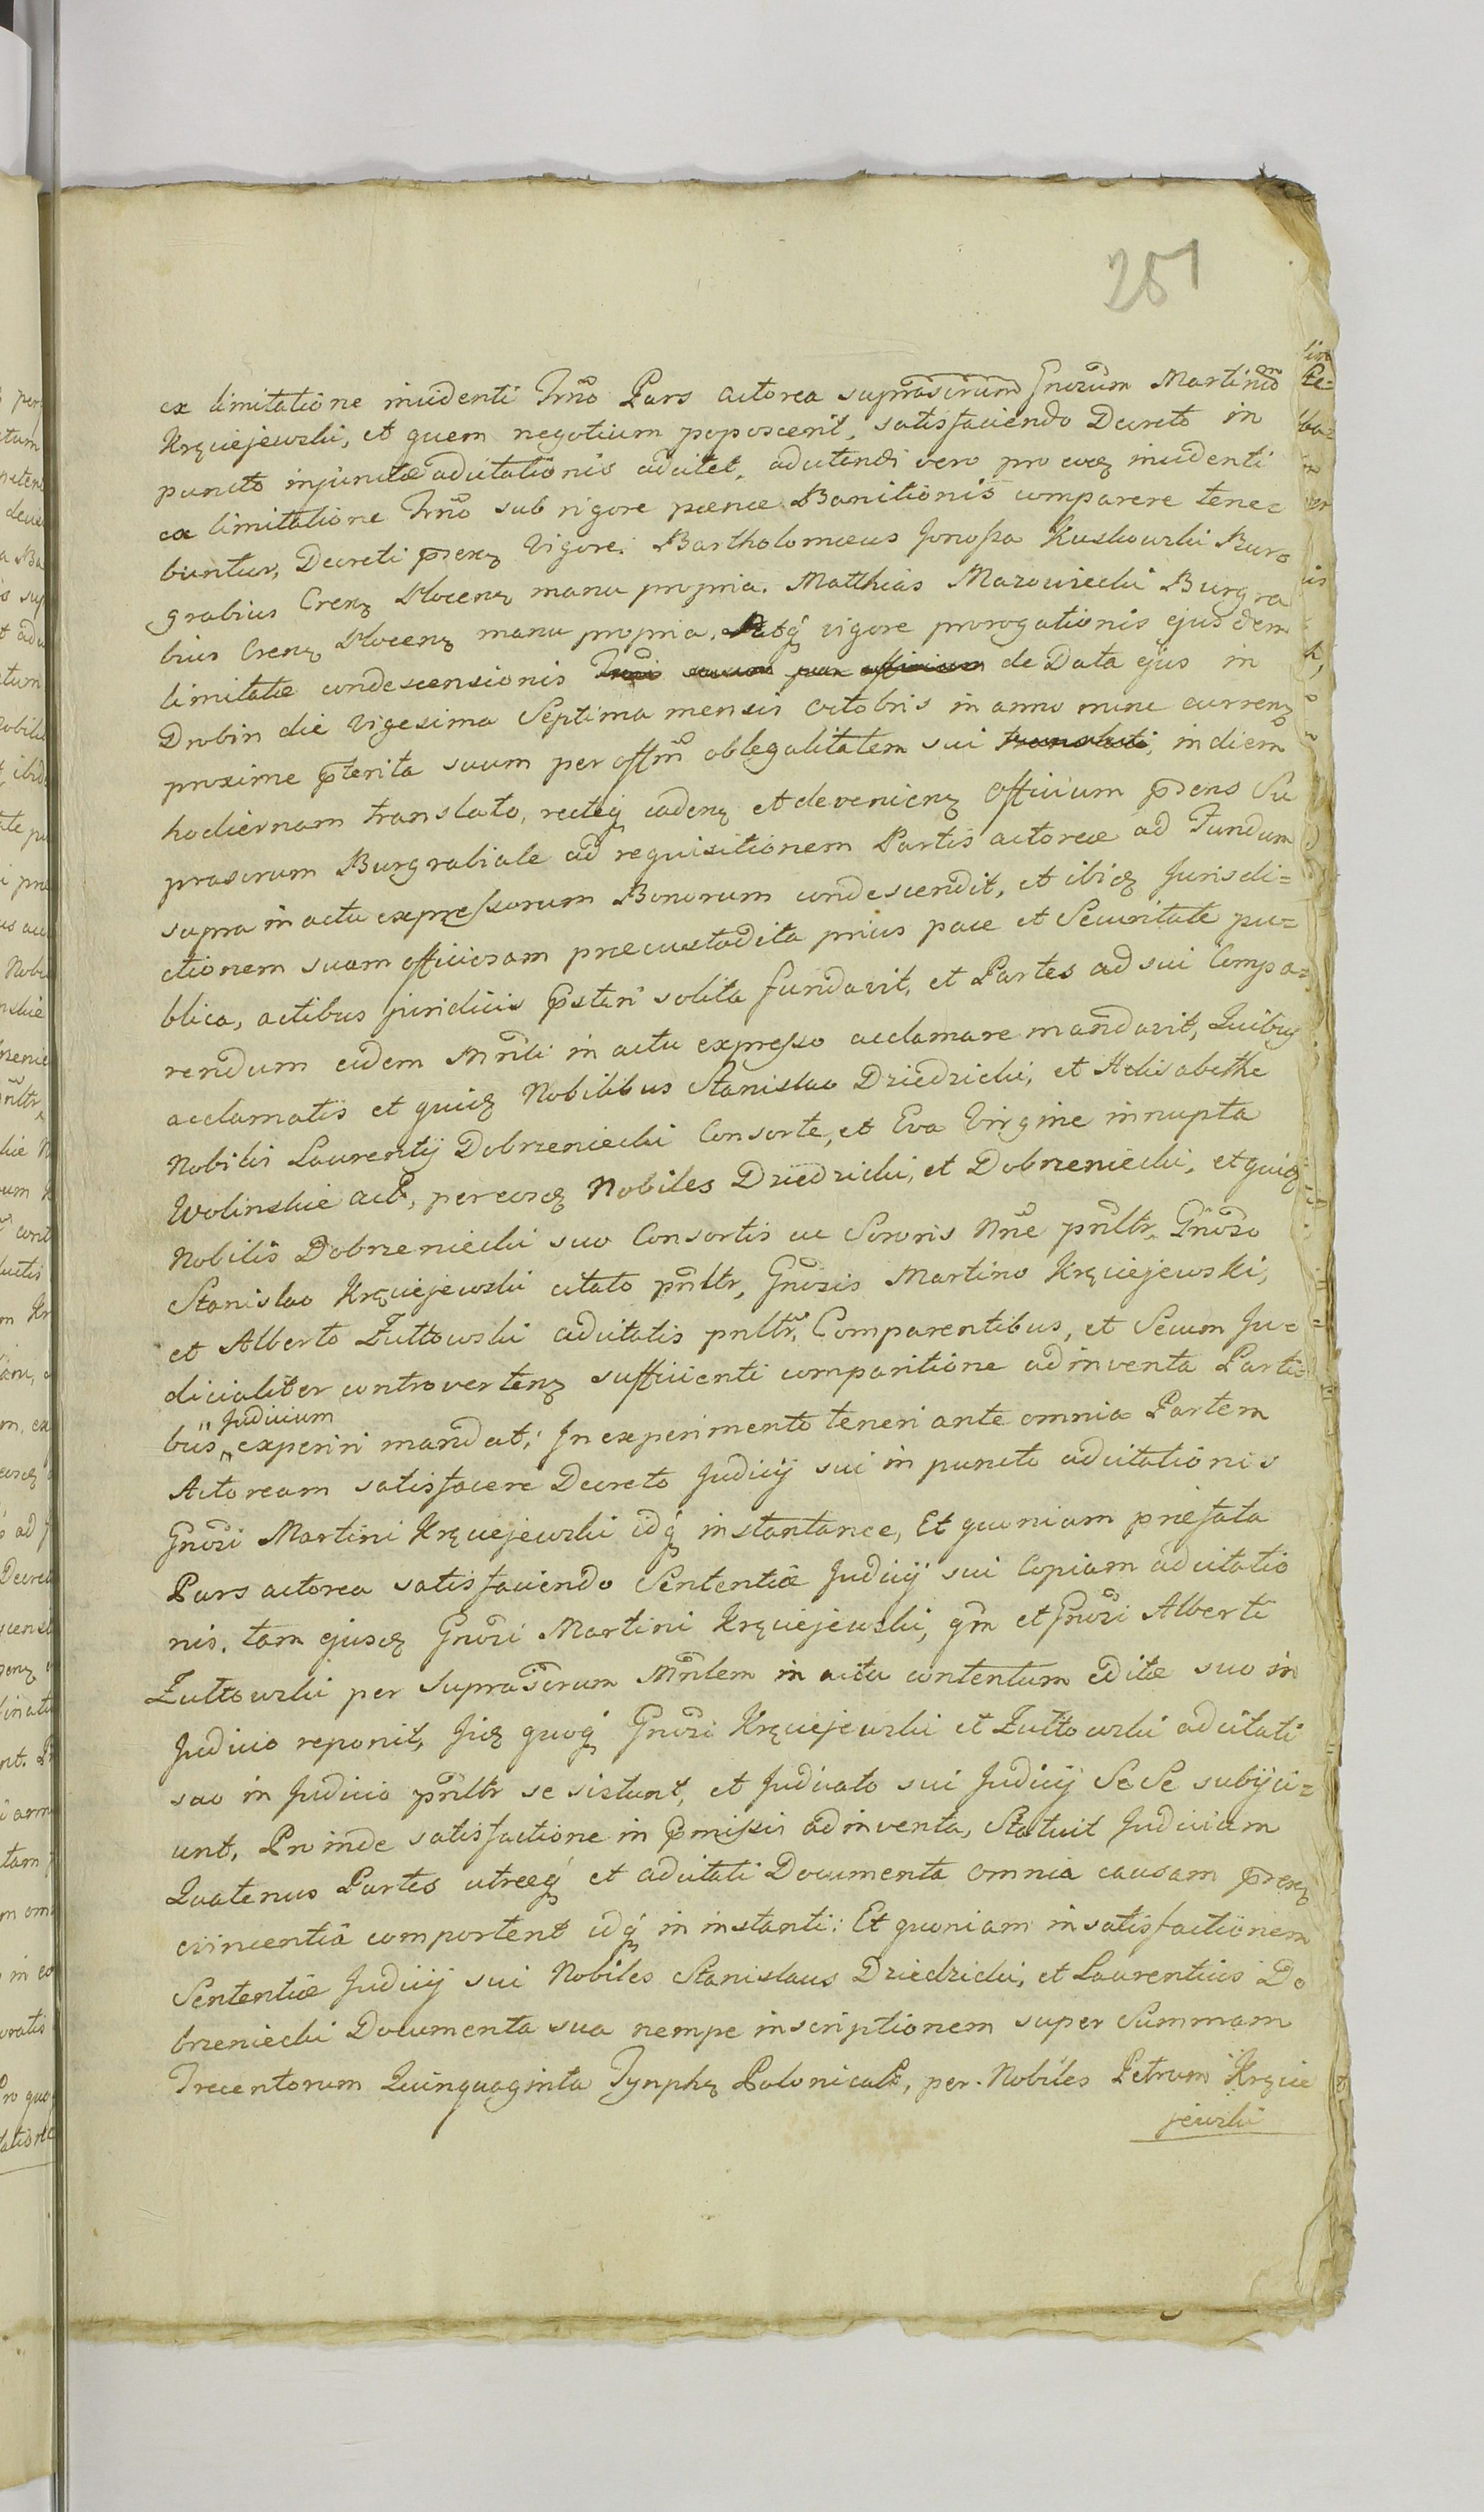 251
ex limitatione incidenti Trno Pars actorea suprascrum Gnosum Martinum
Kręciejewski, et quem negotium poposcerit, satisfaciendo Decreto in
puncto injunctæ adcitationis adcitet, adcitandi vero pro eodę incidenti
ex limitatione Trno sub rigore pœnæ Banitionis comparere tene=
buntur, Decreti psenę vigore. Bartholomæus Junosza Kuskowski Burg
grabius Crenę Plocenę manu propria. Matthias Mazowiecki Burgra
bius Crenę Plocenę manu propria. Atq vigore prorogationis ejusdem
limitatæ condescensionis de Data ejus in
Drobin die Vigesima Septima mensis octobris in anno nunc currenę
proxime pterita suum per offm oblegalitatem sui translati, in diem
hodiernam translato, recteq cadenę et devenienę Officium psens Su
prascrum Burgrabiale ad requisitionem Partis actoreæ ad Fundum
supra in actu expressorum Bonorum condescendit, et ibidę Jurisdi=
ctionem suam officiosam præcustodita prius pace et Securitate pu=
blica, actibus juridicis pstari solita fundavit, et Partes ad sui Compa=
rendum eidem Mnrli in actu expresso acclamare mandavit, Quibus
acclamatis et quidę Nobilibus Stanislao Driedzicki, et Helisabethe
Nobilis Laurentij Dobrzeniecki Consorte, et Eva Virgine innupta
Wolinskie act, per eosdę Nobiles Dziedzicki, et Dobrzeniecki, et quidę
Nobilis Dobrzeniecki suo Consortis ac Sororis Nne pnltr, Gnoso
Stanislao Kręciejewski citato pnltr, Gnosis Martino Kręciejewski,
et Alberto Żułtowski adcitatis pnltr, Comparentibus, et Secum Ju=
dicialiter controvertenę sufficienti comparitione adinventa Parti=
bus Judicium experiri mandat; In experimento teneri ante omnia Partem
Actoream satisfacere Decreto Judicij sui in puncto adcitationis
Gnosi Martini Kręciejewski idq instantanee, Et quoniam præfata
Pars actorea satisfaciendo Sententiæ Judicij sui Copiam adcitatio
nis, tam ejusdę Gnosi Martini Kręciejewski, qm et Gnosi Alberti
Żułtowski per Suprascrum Mnrlem in actu contentum editæ suo in
Judicio reponit, Jidę quoq Gnosi Kręciejewski et Żułtowski adcitati
suo in Judicio pnltr se sistunt, et Judicato sui Judicij Se Se subijci=
unt, Proinde satisfactione in pmissis adinventa, Statuit Judicium
Quatenus Partes utræq et adcitati Documenta omnia causam psenę
evincentia comportent idq in instanti: Et quoniam in satisfactionem
Sententiæ Judicij sui Nobiles Stanislaus Dziedzicki, et Laurentius Do
brzeniecki Documenta sua nempe inscriptionem super Summam
Trecentorum Quinquaginta Tynphę Polonical, per Nobiles Petrum Kręcie
jewski